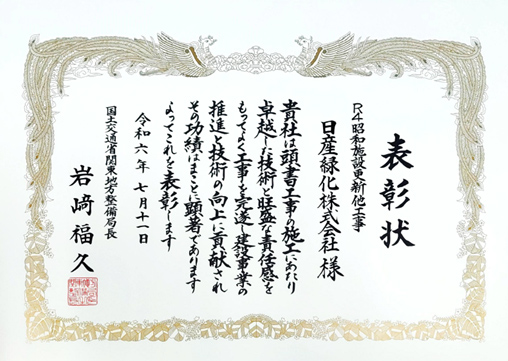 表彰状
R4昭和施設更新他工事
日産緑化株式会社 様
貴社は頭書工事の施工にあたり
卓越した技術と旺盛な責任感を
もってよく工事を完遂し建設事業の
推進と技術の向上に貢献され
その功績はまことに顕著であります
よってこれを表彰します
令和六年 七月十一日
国土交通省関東地方整備局長
岩﨑福久